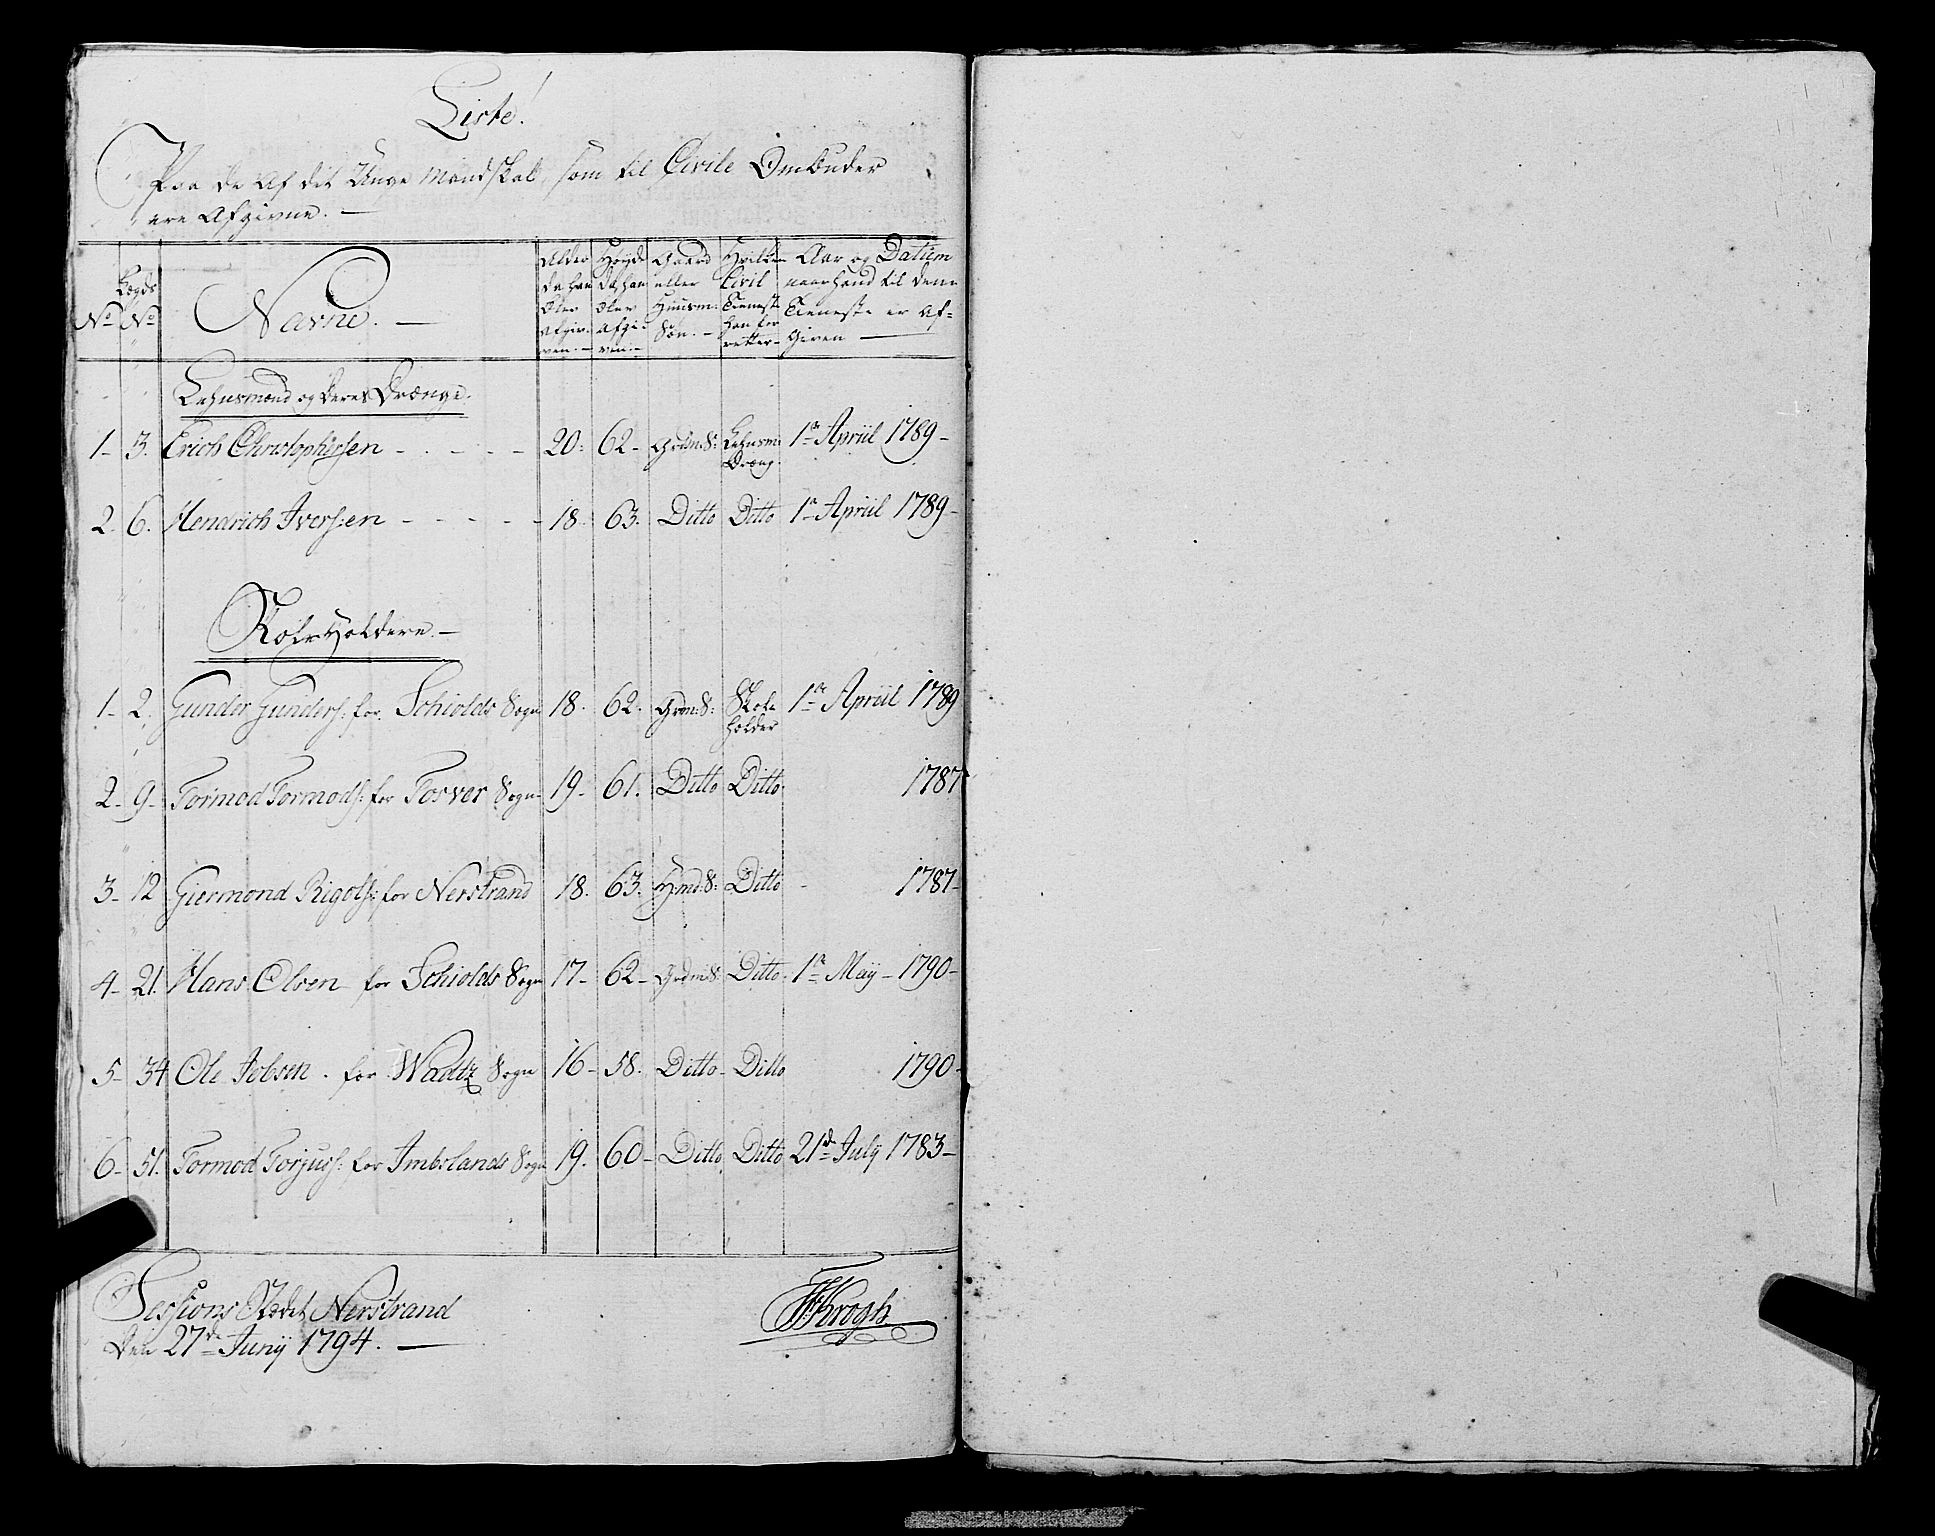 Liste!
Paa de Af det Unge Mandskab, som til Civile Ombuder
ere Afgivne. —
No Lægds No Navne. — Alder da han blev afgiven. — Høyde da han blev afgiven. — Gaard eller Huusm: Søn. — Hvilken Civil Tieneste han for retter — Aar og Datum naar hand til denne Tieneste er Af= Given —
Lehnsmænd og deres Drænge.
1 - 3. Erich Christophersen - - - - 20: 62 - Grdm: S: Lehnsm: Dræng. 1te Apriil 1789 -
2. 6. Hendrich Iversen - - - - - 18. 63. Ditto Ditto 1te Apriil 1789 -
Skole Holdere. —
1 - 2. Gunder Gunders: for Schiolds Sogn 18. 62. Grdm: S: Skole holder 1te Apriil 1789
2 - 9 - Tormod Tormods: for Tosver Sogn - 19 - 61. Ditto Ditto. 1787
3 - 12 Giermond Rigols: for Nerstrand 18. 63. Hmd: S: Ditto - 1787 -
4 - 21. Hans Olsen for Schiolds Sogn 17 - 62 - Grdm: S: Ditto. 1te Maÿ - 1790 -
5 - 34 Ole Jobsen. for Wadtz Sogn 16 - 58. Ditto - Ditto 1790 -
6 - 51. Tormod Torjus: for Imbslands Sogn 19. 60 - Ditto Ditto 21de Julÿ 1783 -
Sessions Stædet Nerstrand
den 27de Junÿ 1794. —
FKrogh